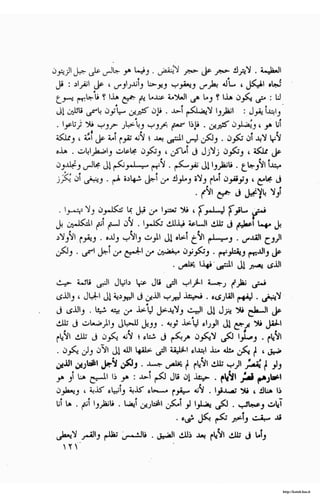 العظيمة . لايترك حجر على حجر لاينقض . وفيما هو جالس على جبل الزيتون
تجاه الهيكل ، سأله بطرس ويعقوب ويوحنا وأندراوس ، على انفراد : قل
لنا : متى يكون هذا ؟ وما هو العلامة عندما يتم جميع هذا ؟ فأجابهم يسوع
وابتدأ يقول : انظروا لايضلكم أحد . فإن كثيرين سيأتون باسمى قائلين إنى
أنا هو ، ويضلون كثيرين . فإذا سمعتم بحروب وبأخبار حروب فلا ترتاعوا .
لأنها لابد أن تكون . ولكن ليس المنتهى بعد ، لأنه تقوم أمة على أمة ، ومملكة
على مملكة ، وتكون زلازل فى أماكن ، وتكون مجاعات واضطرابات . هذه
مبتدأ الأوجاع . فانظروا إلى نفوسكم . لأنهم سيسلمونكم إلى مجالس وتجلدون
فى مجامع ، وتوقفون أمام ولاة وملوك من أجلى شهادة لهم . وينبغى أن يُكْرَز
أولاً بالإنجيل فى جميع الأمم .
فمتى ساقوكم ليسلموكم ، فلا تعتنوا من قبل بما تتكلمون ولا تهتموا .
بل مهما أُعطيتم فى تلك الساعة فبذلك تكلموا . لأن لستم أنتم المتكلمين بل
الروح القدس . وسيسلم الأخ أخاه إلى الموت والأب ولده . ويقوم الأولاد
على والديهم ويقتلونهم . وتكونون مبغضين من الجميع من أجل اسمى . ولكن
الذى يصبر إلى المنتهى فهذا يخلص .
فمتى نظرتم رجسة الخراب التى قال عنها دانيال النبى قائمة حيث
لاينبغى . ليفهم القارىء . فحينئذ ليهرب الذين فى اليهودية إلى الجبال ، والذى
على السطح فلا ينزل إلى البيت ولايدخل ليأخذ من بيته شيئاً . والذى فى
الحقل فلا يرجع إلى الوراء ليأخذ ثوبه . وويل للحبالى والمرضعات فى تلك
الأيام . وصلوا لكى لايكون هربكم فى شتاء ؛ لأنه يكون فى تلك الأيام
ضيق ، لم يكن مثله منذ ابتداء الخليقة التى خلقها الله إلى الآن ولن يكون .
ولو لم يُقصِّر الرب تلك الأيام لم يخلص جسد . ولكن لأجل المختارين الذين
اختارهم قصَّر الأيام . حينئذ إن قال لكم أحد : هو ذا المسيح هنا أو هو
ذا هناك ، فلا تصدقوا . لأنه سيقوم مسحاء كذبة ، وأنبياء كذبة ، ويعطون
آيات وعجائب . لكى يضلوا لو أمكن المختارين أيضاً . فانظروا أنتم . ها أنا
قد سبقت وأخبرتكم بكل شىء .
وأما فى تلك الأيام بعد ذلك الضيق . فالشمس تظلم والقمر لايعطى
١٢١
http://kotob.has.it